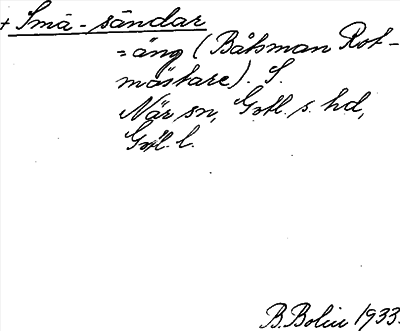 + Små-sändar
= äng (Båtsman Rot-
mästare). S.
När sn, Gotl. s. hd,
Gotl. l.
B. Bolin 1933.